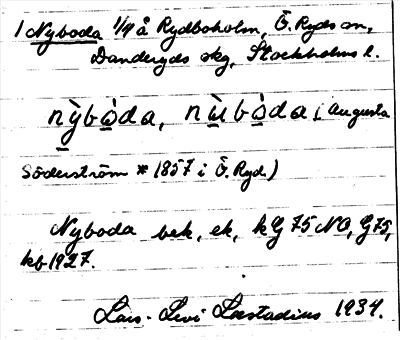 1 Nyboda 1/4 å Rydboholm, Ö. Ryds sn,
Danderyds skg, Stockholms l.
nỳbòda, nùbòda (Augusta
Söderström * 1857 i Ö. Ryd)
Nyboda bek, ek, kG 75 NO, G75,
kb 1927.
Lars-Levi Læstadius 1934.